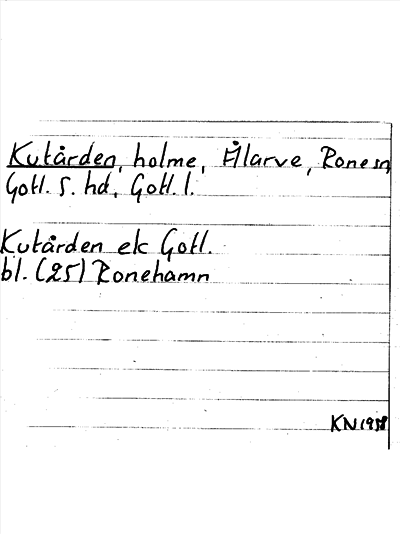 Kutården, holme, Ålarve, Rone sn
Gotl. S. hd, Gotl. l.
Kutården ek Gotl.
bl. (25) Ronehamn
KN 1938